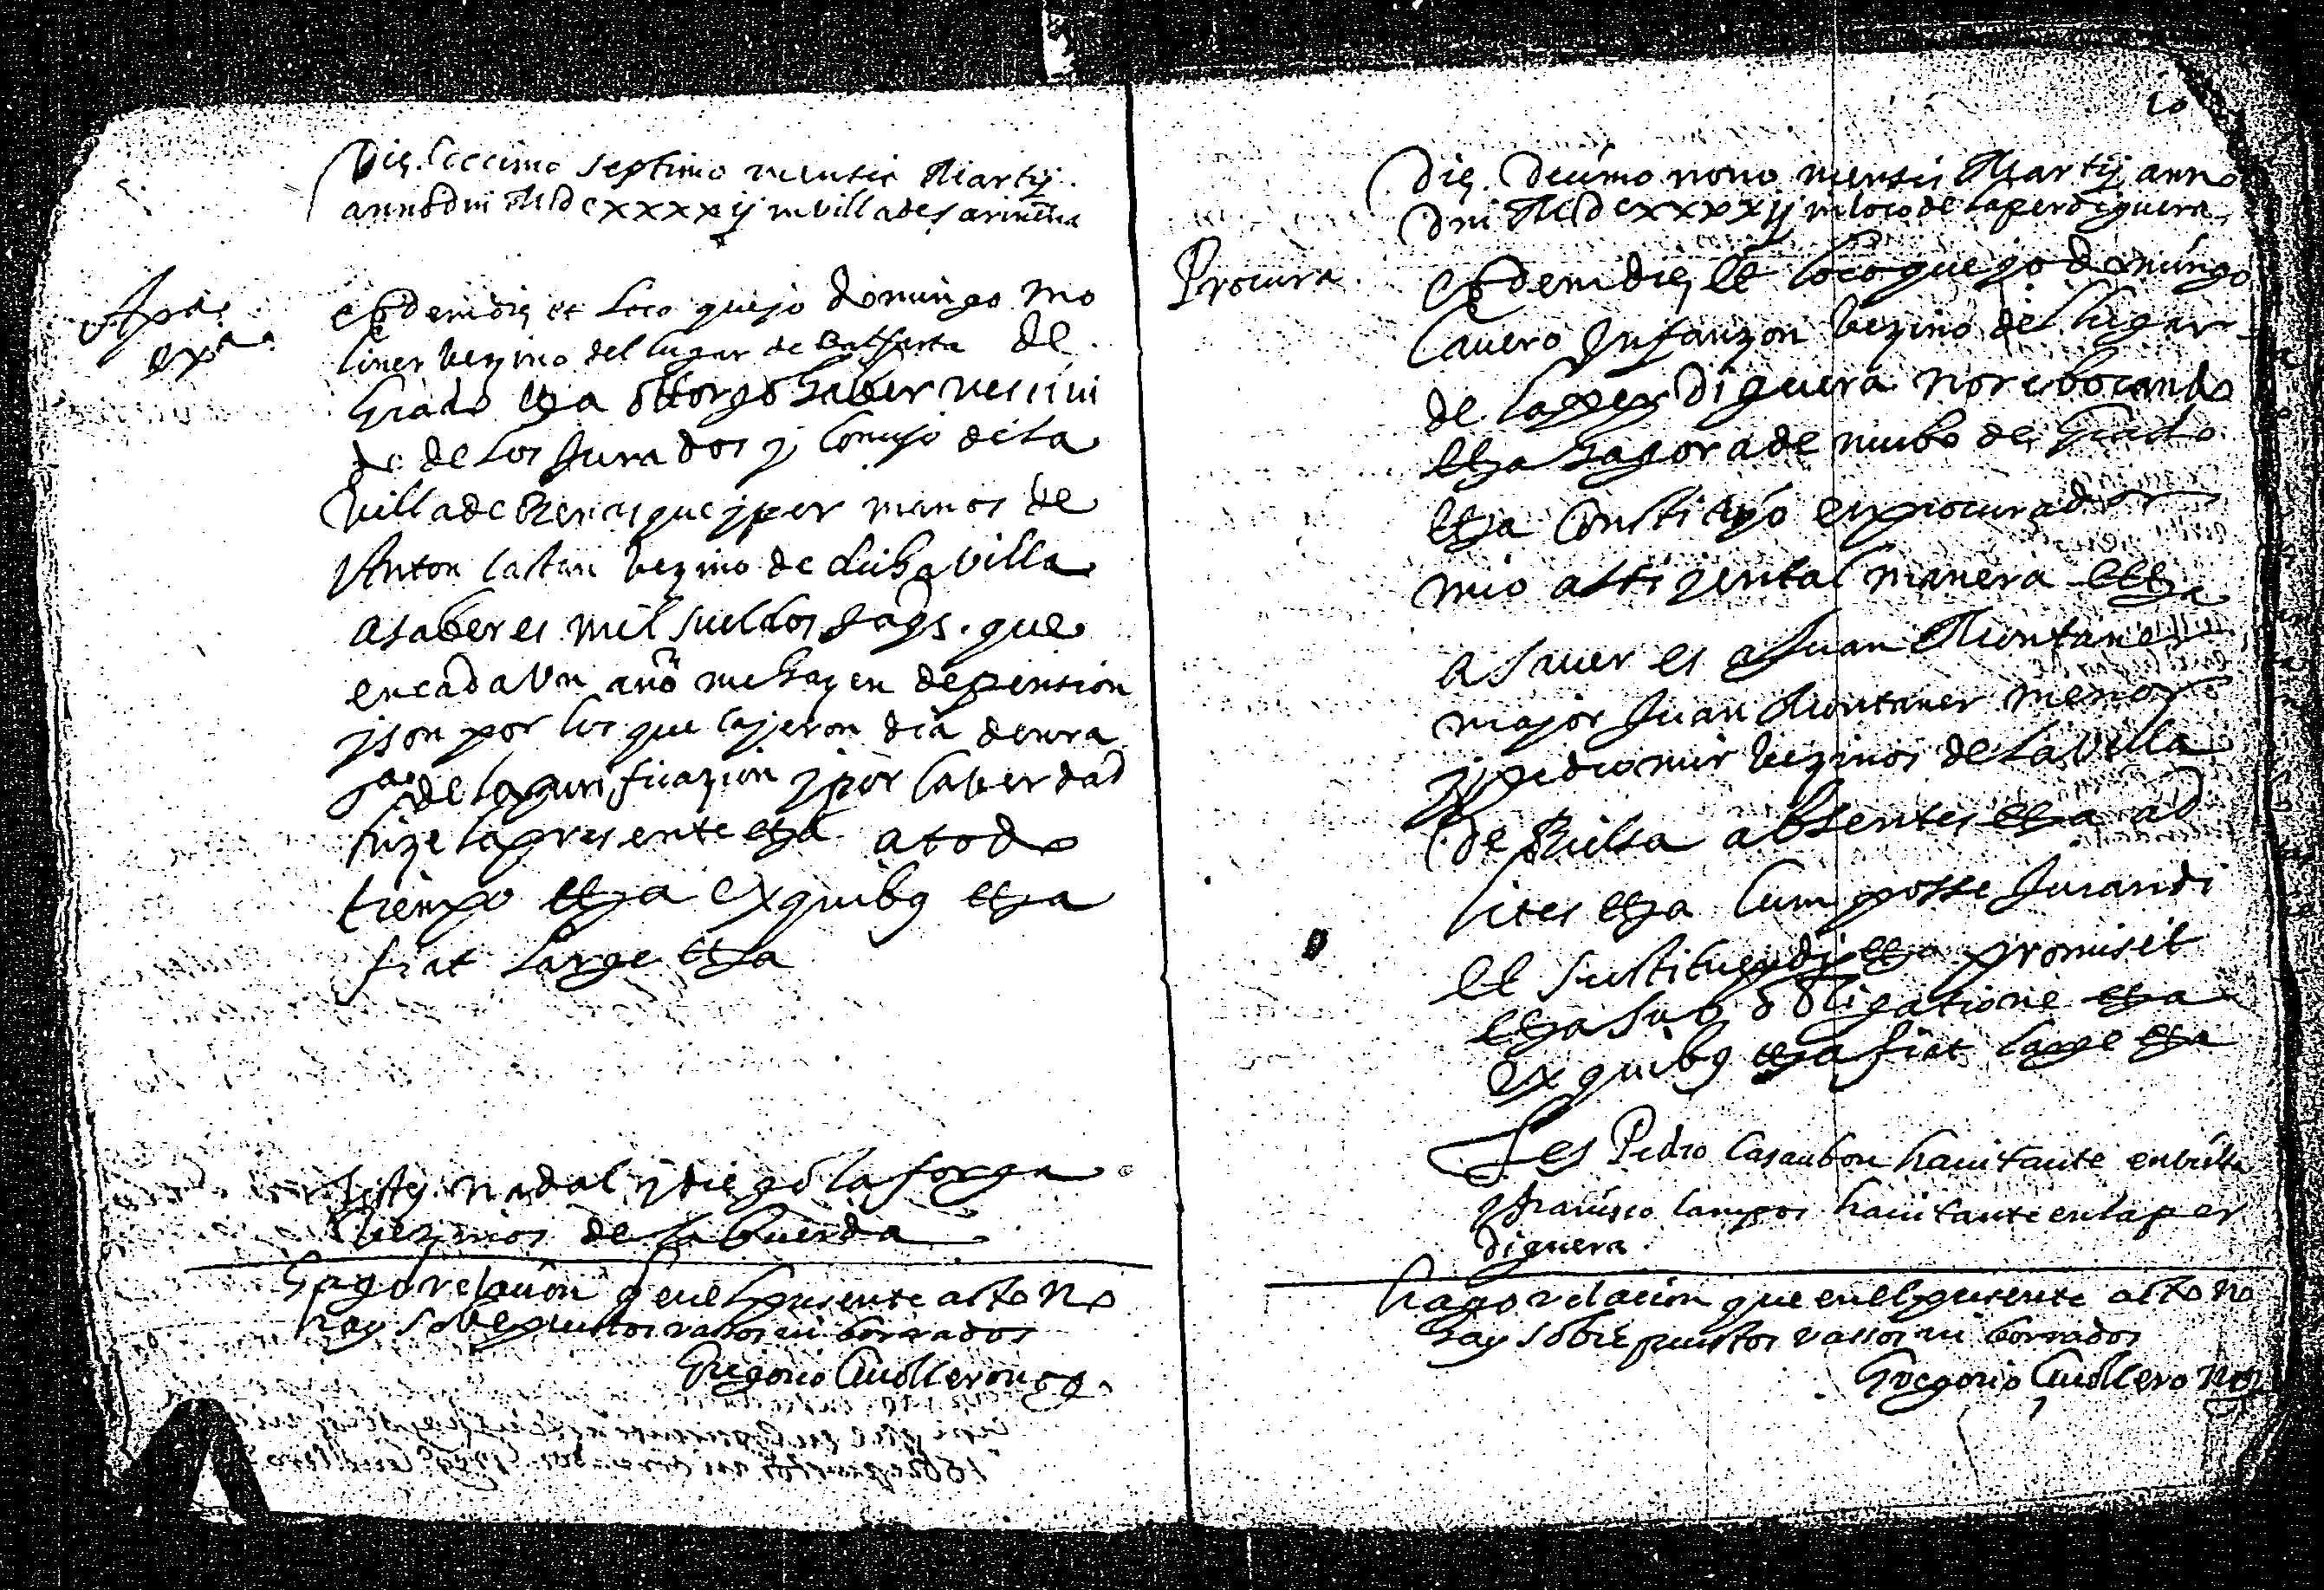 Die decimo septimo mensis Martij
anno dni MDCXXXXij in villa de sariñena
Apa
exª
Eodem die et loco que yo domingo mo
liner vezino del lugar de
de
Grado etza ottorgo haber recivi
do de los Jurados y Concejo de la
villa de y por manos de
Anton Castan vezino de dicha villa
a saber es mil sueldos Jaqs. que
en cada un año me hazen de pension
y son por los que cayeron dia de nra
sª de la purificazion y por la verdad
hize la presente etza a todo
tiempo etza ex quibus etza
fiat large etza
Tes nadal y diego la forga
vezinos de la buerda
Hago relacion q en el presente acto no
hay sobrepuestos rassos ni borrados
Gregorio Cuollero noto
10
Die decimo nono mensis Martij anno
dni MDCXXXXij in loco de laperdiguera
Procura
Eodem die et loco que yo domingo
Cavero Infanzon vezino del lugar
de laperdiguera no rebocando
etza hagora de nuebo de Grado
etza Constituyo en procurador
mio asti y en tal manera etza
a saver es a Juan Muntaner
mayor Juan Muntaner menor
y pedro mir vezinos de la Villa
de Bielsa absentes etza ad
lites etza Cum posse Jurandi
et sustituendi etza promisit
etza sub obligatione etza
ex quibus etza fiat large etza
Tes Pedro Casaubon havitante en bielsa
y francisco campos havitante en laper
diguera
hago relacion que en el presente acto no
hay sobrepuestos rassos ni borrados
Gregorio Cuollero not